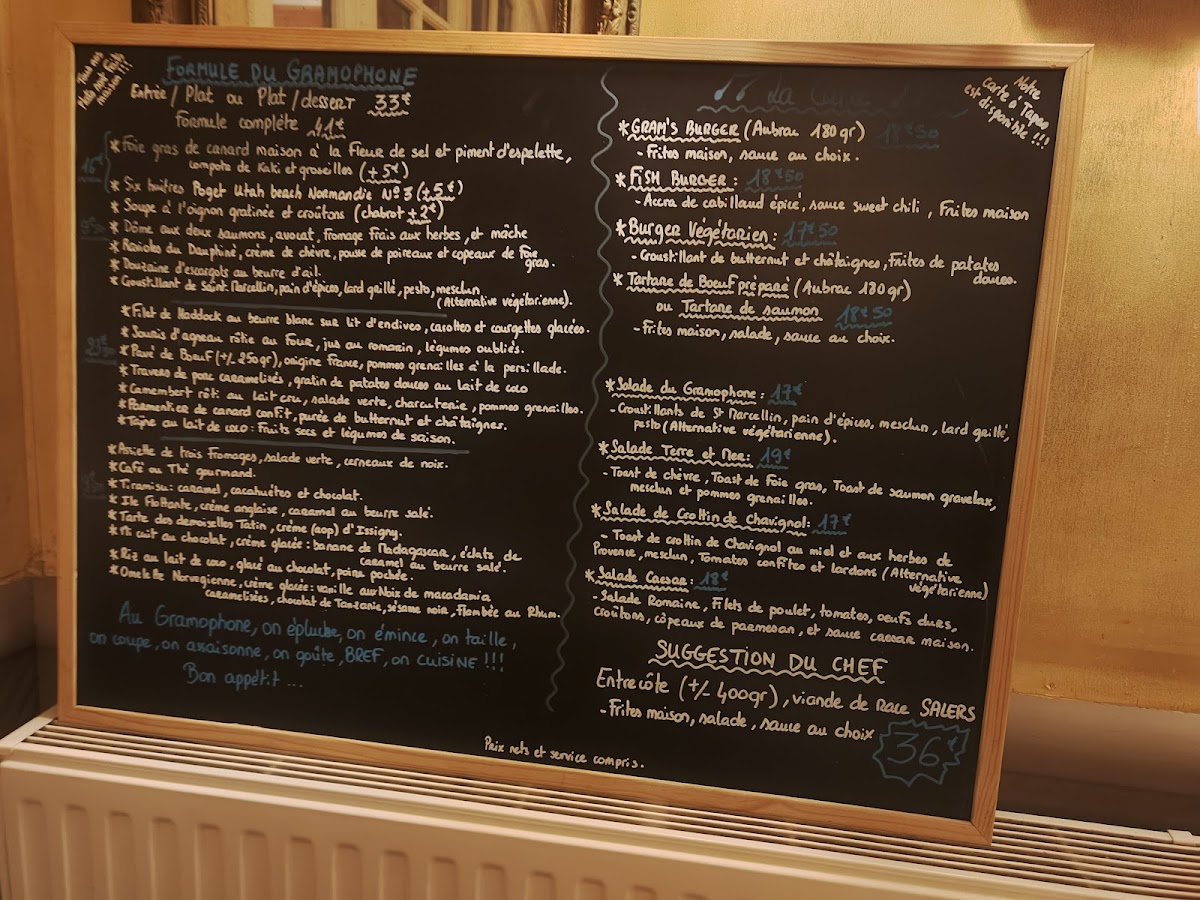 Tous nos
plats sont faits
maison !!!
FORMULE DU GRAMOPHONE
Entrée / Plat ou Plat / dessert 33€
formule complète 41€
* Foie gras de canard maison à la Fleur de sel et piment d'espelette,
compote de Kaki et groseilles (+5€)
* Six huîtres Poget Utah beach Normandie N°3 (+5€)
* Soupe à l'oignon gratinée et croûtons (chabrot +2€)
* Dôme aux deux saumons, avocat, fromage frais aux herbes, et mâche
* Ravioles du Dauphiné, crème de chèvre, pousse de poireaux et copeaux de foie
gras.
* Douzaine d'escargots au beurre d'ail.
* Croustillant de Saint Marcellin, pain d'épices, lard grillé, pesto, mesclun
(Alternative végétarienne).
* Filet de Haddock au beurre blanc sur lit d'endives, carottes et courgettes glacées.
* Souris d'agneau rôtie au four, jus au romarin, légumes oubliés.
* Pavé de Boeuf (+/- 250gr), origine France, pommes grenailles à la persillade.
* Travers de porc caramelisés, gratin de patates douces au lait de coco
* Camembert rôti au lait cru, salade verte, charcuterie, pommes grenailles.
* Parmentier de canard confit, purée de butternut et châtaignes.
* Tajine au lait de coco: Fruits secs et légumes de saison.
* Assiette de trois Fromages, salade verte, cerneaux de noix.
* Café ou Thé gourmand.
* Tiramisu: caramel, cacahuètes et chocolat.
* Ile Flottante, crème anglaise, caramel au beurre salé.
* Tarte des demoiselles Tatin, crème (aop) d'Issigny.
* Mi cuit au chocolat, crème glacée: banane de Madagascar, éclats de
caramel au beurre salé.
* Riz au lait de coco, glacé au chocolat, poire pochée.
* Omelette Norvegienne, crème glacée: vanille aux Noix de macadamia
caramelisées, chocolat de Tanzanie, sésame noir, flambée au Rhum.
Au Gramophone, on épluche, on émince, on taille,
on coupe, on assaisonne, on goûte, BREF, on CUISINE !!!
Bon appétit ...
La
Notre
carte à Tapas
est disponible !!!
* GRAM'S BURGER (Aubrac 180gr) 18€50
- Frites maison, sauce au choix.
* FISH BURGER: 18€50
- Accra de cabillaud épicé, sauce sweet chili, Frites maison
* Burger Végétarien: 17€50
- Croustillant de butternut et châtaignes, Frites de patates
douces.
* Tartare de Boeuf préparé (Aubrac 180gr)
ou Tartare de saumon 18€50
- Frites maison, salade, sauce au choix.
* Salade du Gramophone: 17€
- Croustillants de St Marcellin, pain d'épices, mesclun, lard grillé,
pesto (Alternative végétarienne).
* Salade Terre et Mer: 19€
- Toast de chèvre, Toast de foie gras, Toast de saumon gravelax,
mesclun et pommes grenailles.
* Salade de Crottin de Chavignol: 17€
- Toast de crottin de Chavignol au miel et aux herbes de
Provence, mesclun, Tomates confites et lardons (Alternative
végétarienne)
* Salade Caesar: 18€
- Salade Romaine, Filets de poulet, tomates, oeufs durs,
croûtons, côpeaux de parmesan, et sauce caesar maison.
SUGGESTION DU CHEF
Entrecôte (+/- 400gr), viande de Race SALERS
- Frites maison, salade, sauce au choix
36€
Prix nets et service compris.